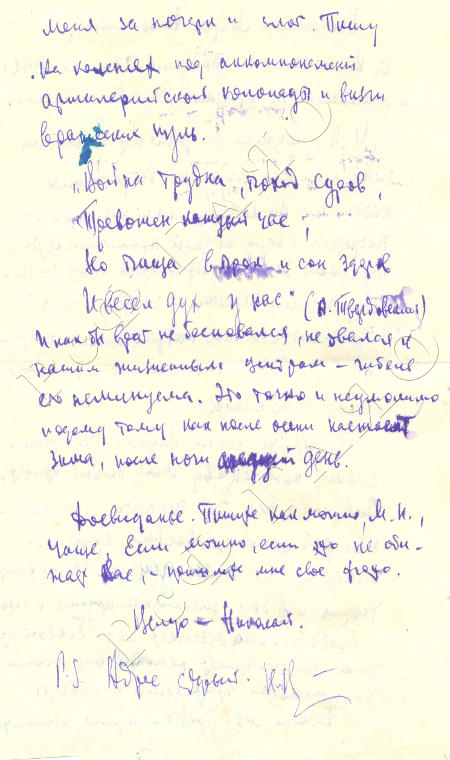 меня за почерк и слог. Пишу
на коленях под аккомпонемент
артилерийской канонады и визги
вражеских пуль.
„Война трудна, поход суров,
Тревожен каждый час,
Но пища впрок и сон здоров
И весел дух у нас" (А. Твардовский)
И как бы враг не бесновался, не рвался к
нашим жизненным центрам – гибель
его неминуема. Это точно и неумолимо
подобно тому как после осени настает
зима, после ночи день.
Досвиданье. Пишите как можно, М. Н.,
чаще, если можно, если это не оби-
жает Вас, – пришлите мне свое фото.
Целую – Николай.
P.S. Адрес старый.